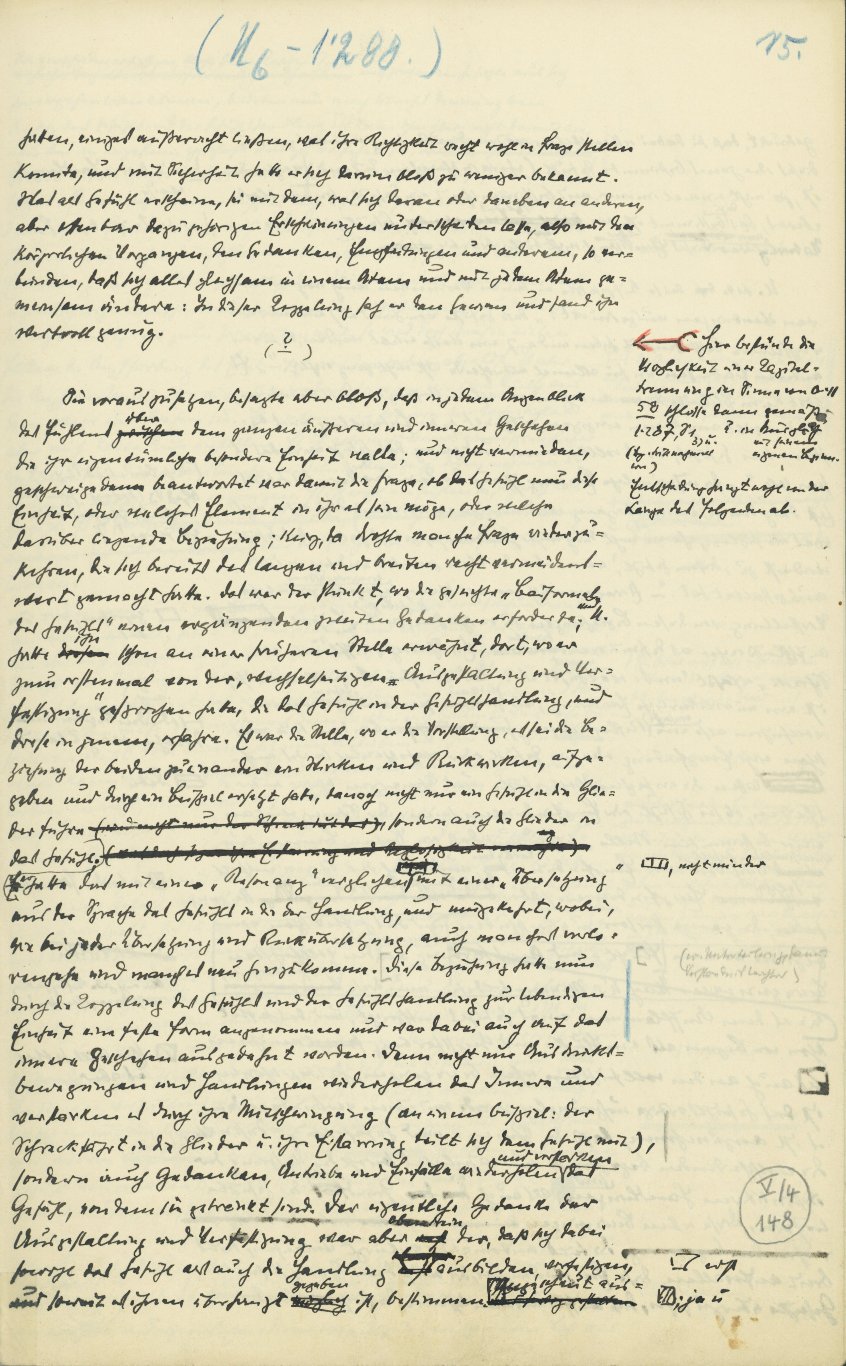 (N6 - 1'288.)
15.
haben, einiges außeracht ließen, was ihre Richtigkeit recht wohl in Frage stellen
konnte, und mit Sicherheit hatte er sich darin bloß zu weniger bekannt.
Was als Gefühl erscheine, sei mit dem, was sich daran oder daneben an anderen,
aber offenbar dazu gehörigen Erscheinungen unterscheiden lasse, also mit den
körperlichen Vorgängen, den Gedanken, Empfindungen und anderem, so ver=
bunden, daß sich alles gleichsam in einem Atem und mit jedem Atem ge=
meinsam ändere: In dieser Koppelung sah er den Gewinn und fand ihn
wertvoll genug.
( ? )
Sie vorauszusetzen, besagte aber bloß, daß in jedem Augenblick
des Fühlens über dem ganzen äußeren und inneren Geschehen
die ihr eigentümliche besondere Einheit walte; und nicht vermieden,
geschweige denn beantwortet war damit die Frage, ob das Gefühl nun diese
Einheit, oder welches Element in ihr es sein möge, oder welche
darüber liegende Beziehung; kurz, da drohte manche Frage wiederzu=
kehren, die sich bereits des langen und breiten recht vermeidens=
wert gemacht hatte. Das war der Punkt, wo die gesuchte
des Gefühls" einen ergänzenden zweiten Gedanken erforderte; und U.
hatte ihn schon an einer früheren Stelle erwähnt, dort, wo er
zum erstenmal von der „wechselseitigen Ausgestaltung und Ver=
festigung" gesprochen habe, die das Gefühl in der Gefühlshandlung, und
diese in jenem, erfahre. Es war die Stelle, wo er die Vorstellung, es sei die Be=
ziehung der beiden zueinander ein Wirken und Rückwirken, aufge=
geben und durch ein Beispiel ersetzt habe, danach nicht nur ein Gefühl in die Glie=
der führe, sondern auch die Glieder in
das Gefühl.
Er hatte das mit einer „Resonanz" verglichen, mit einer „Übersetzung"
aus der Sprache des Gefühls in die der Handlung, und umgekehrt, wobei,
wie bei jeder Übersetzung und Rückübersetzung, auch manches verlo=
rengehe und manches neu hinzukomme. [Diese Beziehung hatte nun
durch die Koppelung des Gefühls und der Gefühlshandlung zur lebendigen
Einheit eine feste Form angenommen und war dabei auch auf das
innere Geschehen ausgedehnt worden. Denn nicht nur Ausdrucks=
bewegungen und Handlungen wiederholen das Innere und
verstärken es durch ihre Mitschwingung (an einem Beispiel: der
Schreck fährt in die Glieder u. ihre Erstarrung teilt sich dem Gefühl mit),
sondern auch Gedanken, Antriebe und Einfälle wiederholen und verstärken das
Gefühl, von dem sie getränkt sind. Der eigentliche Gedanke der
Ausgestaltung und Verfestigung war aber obendrein der, daß sich dabei
sowohl das Gefühl als auch die Handlung ausbilden, verfestigen,
und soweit es ihnen überhaupt gegeben ist, bestimmen
Hier bestünde die
Möglichkeit einer Kapitel=
trennung im Sinne von
58 schlösse dann gemäß
1·287,
Entscheidung hängt wohl von der
Länge des Folgenden ab.
VII, nicht minder
V/4
148
VIII; ja u